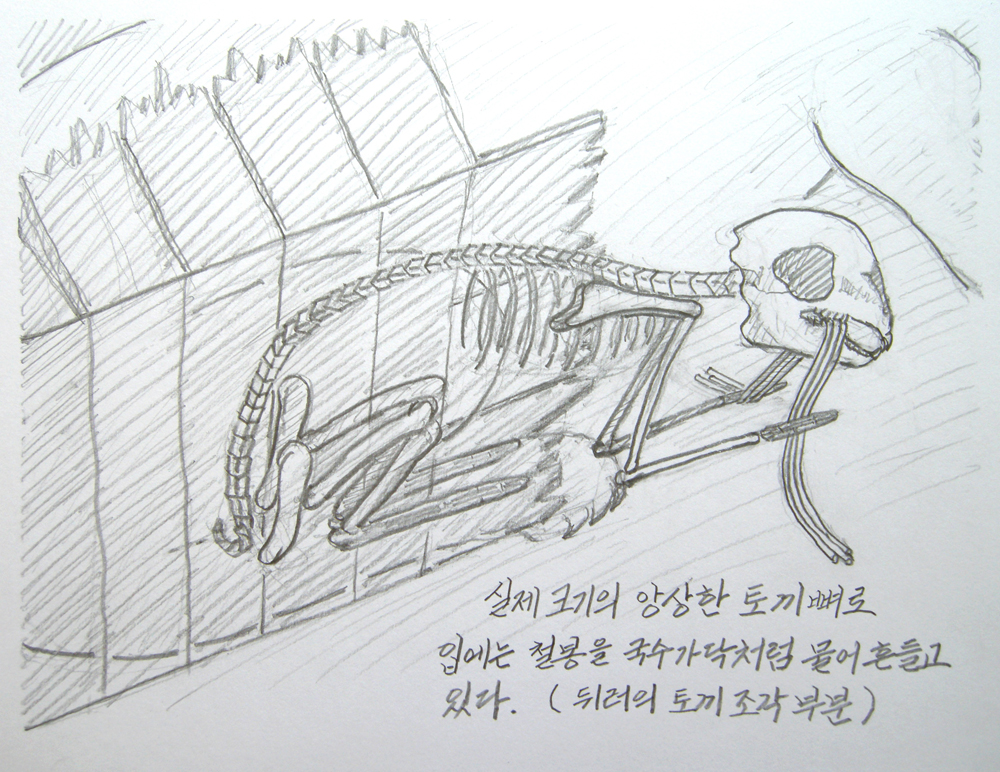 실제 크기의 앙상한 토끼뼈로
입에는 철봉을 국수가닥처럼 물어 흔들고
있다. (뒤러의 토끼 조각 부분)